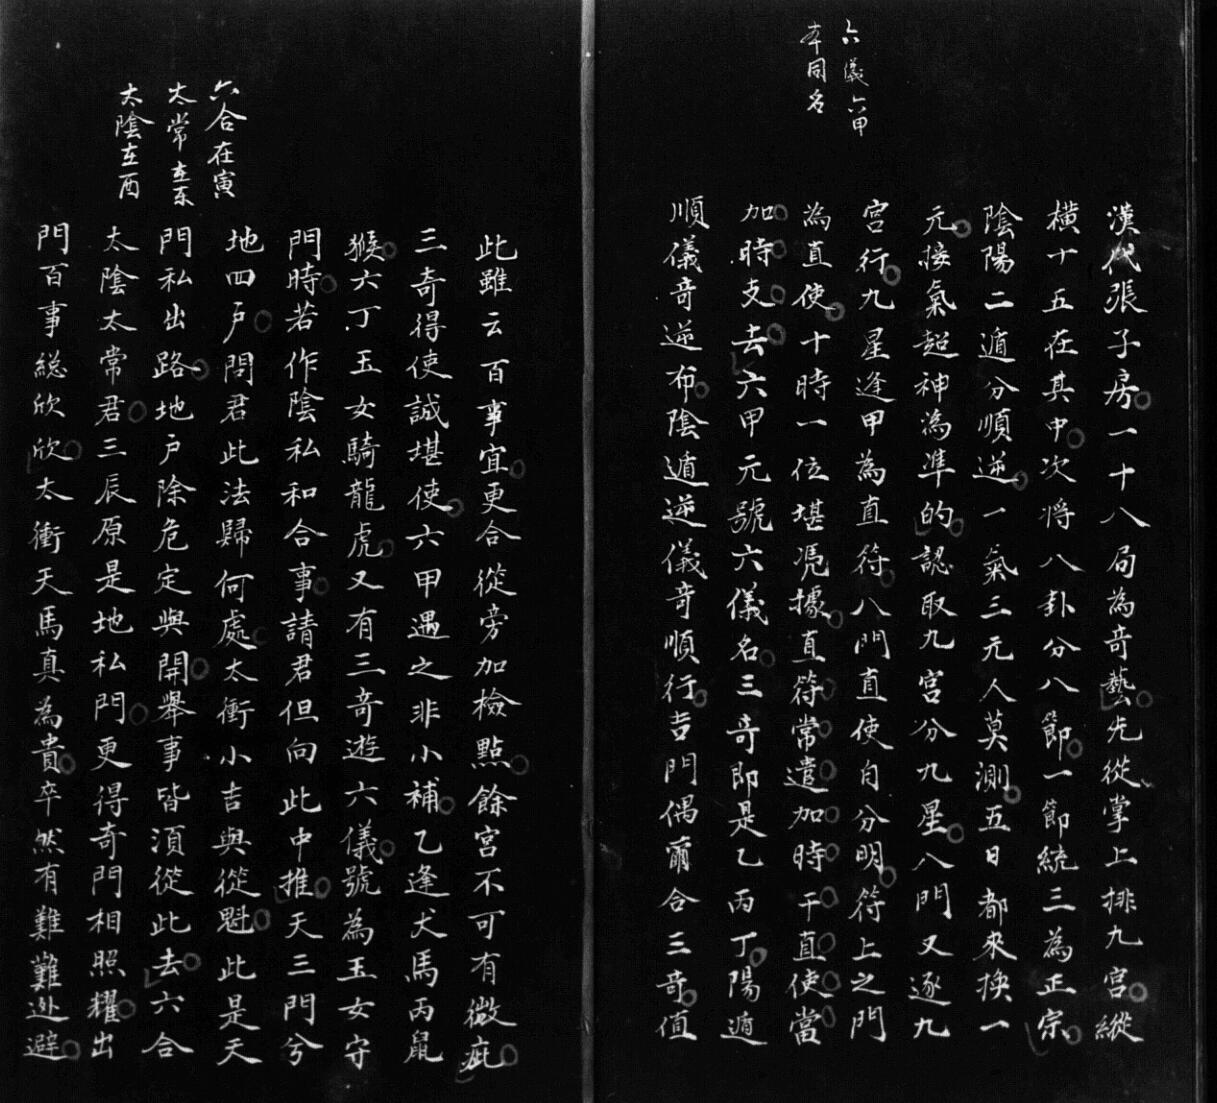 六儀六甲
本同名
漢代張子房一十八局為奇藝先從掌上排九宮縱
橫十五在其中次將八卦分八節一節統三為正宗
陰陽二遁分順逆一氣三元人莫測五日都來換一
元接氣超神為準的認取九宮分九星八門又逐九
宮行九星逢甲為直符八門直使自分明符上之門
為直使十時一位堪凴據直符常遣加時干直使當
加時支去六甲元號六儀名三奇即是乙丙丁陽遁
順儀奇逆布陰遁逆儀奇順行吉門偶爾合三奇值
此雖云百事宜更合從旁加檢點餘宮不可有微疵
三奇得使誠堪使六甲遇之非小補乙逢犬馬丙鼠
猴六丁玉女騎龍虎又有三奇遊六儀號為玉女守
門時若作陰私和合事請君但向此中推天三門兮
地四戶問君此法歸何處太衝小吉與從魁此是天
門私出路地戶除危定與開舉事皆須從此去六合
太陰太常君三辰原是地私門更得奇門相照耀出
門百事総欣欣太衝天馬真為貴卒然有難難逃避
六合在寅
太常在
太陰在酉